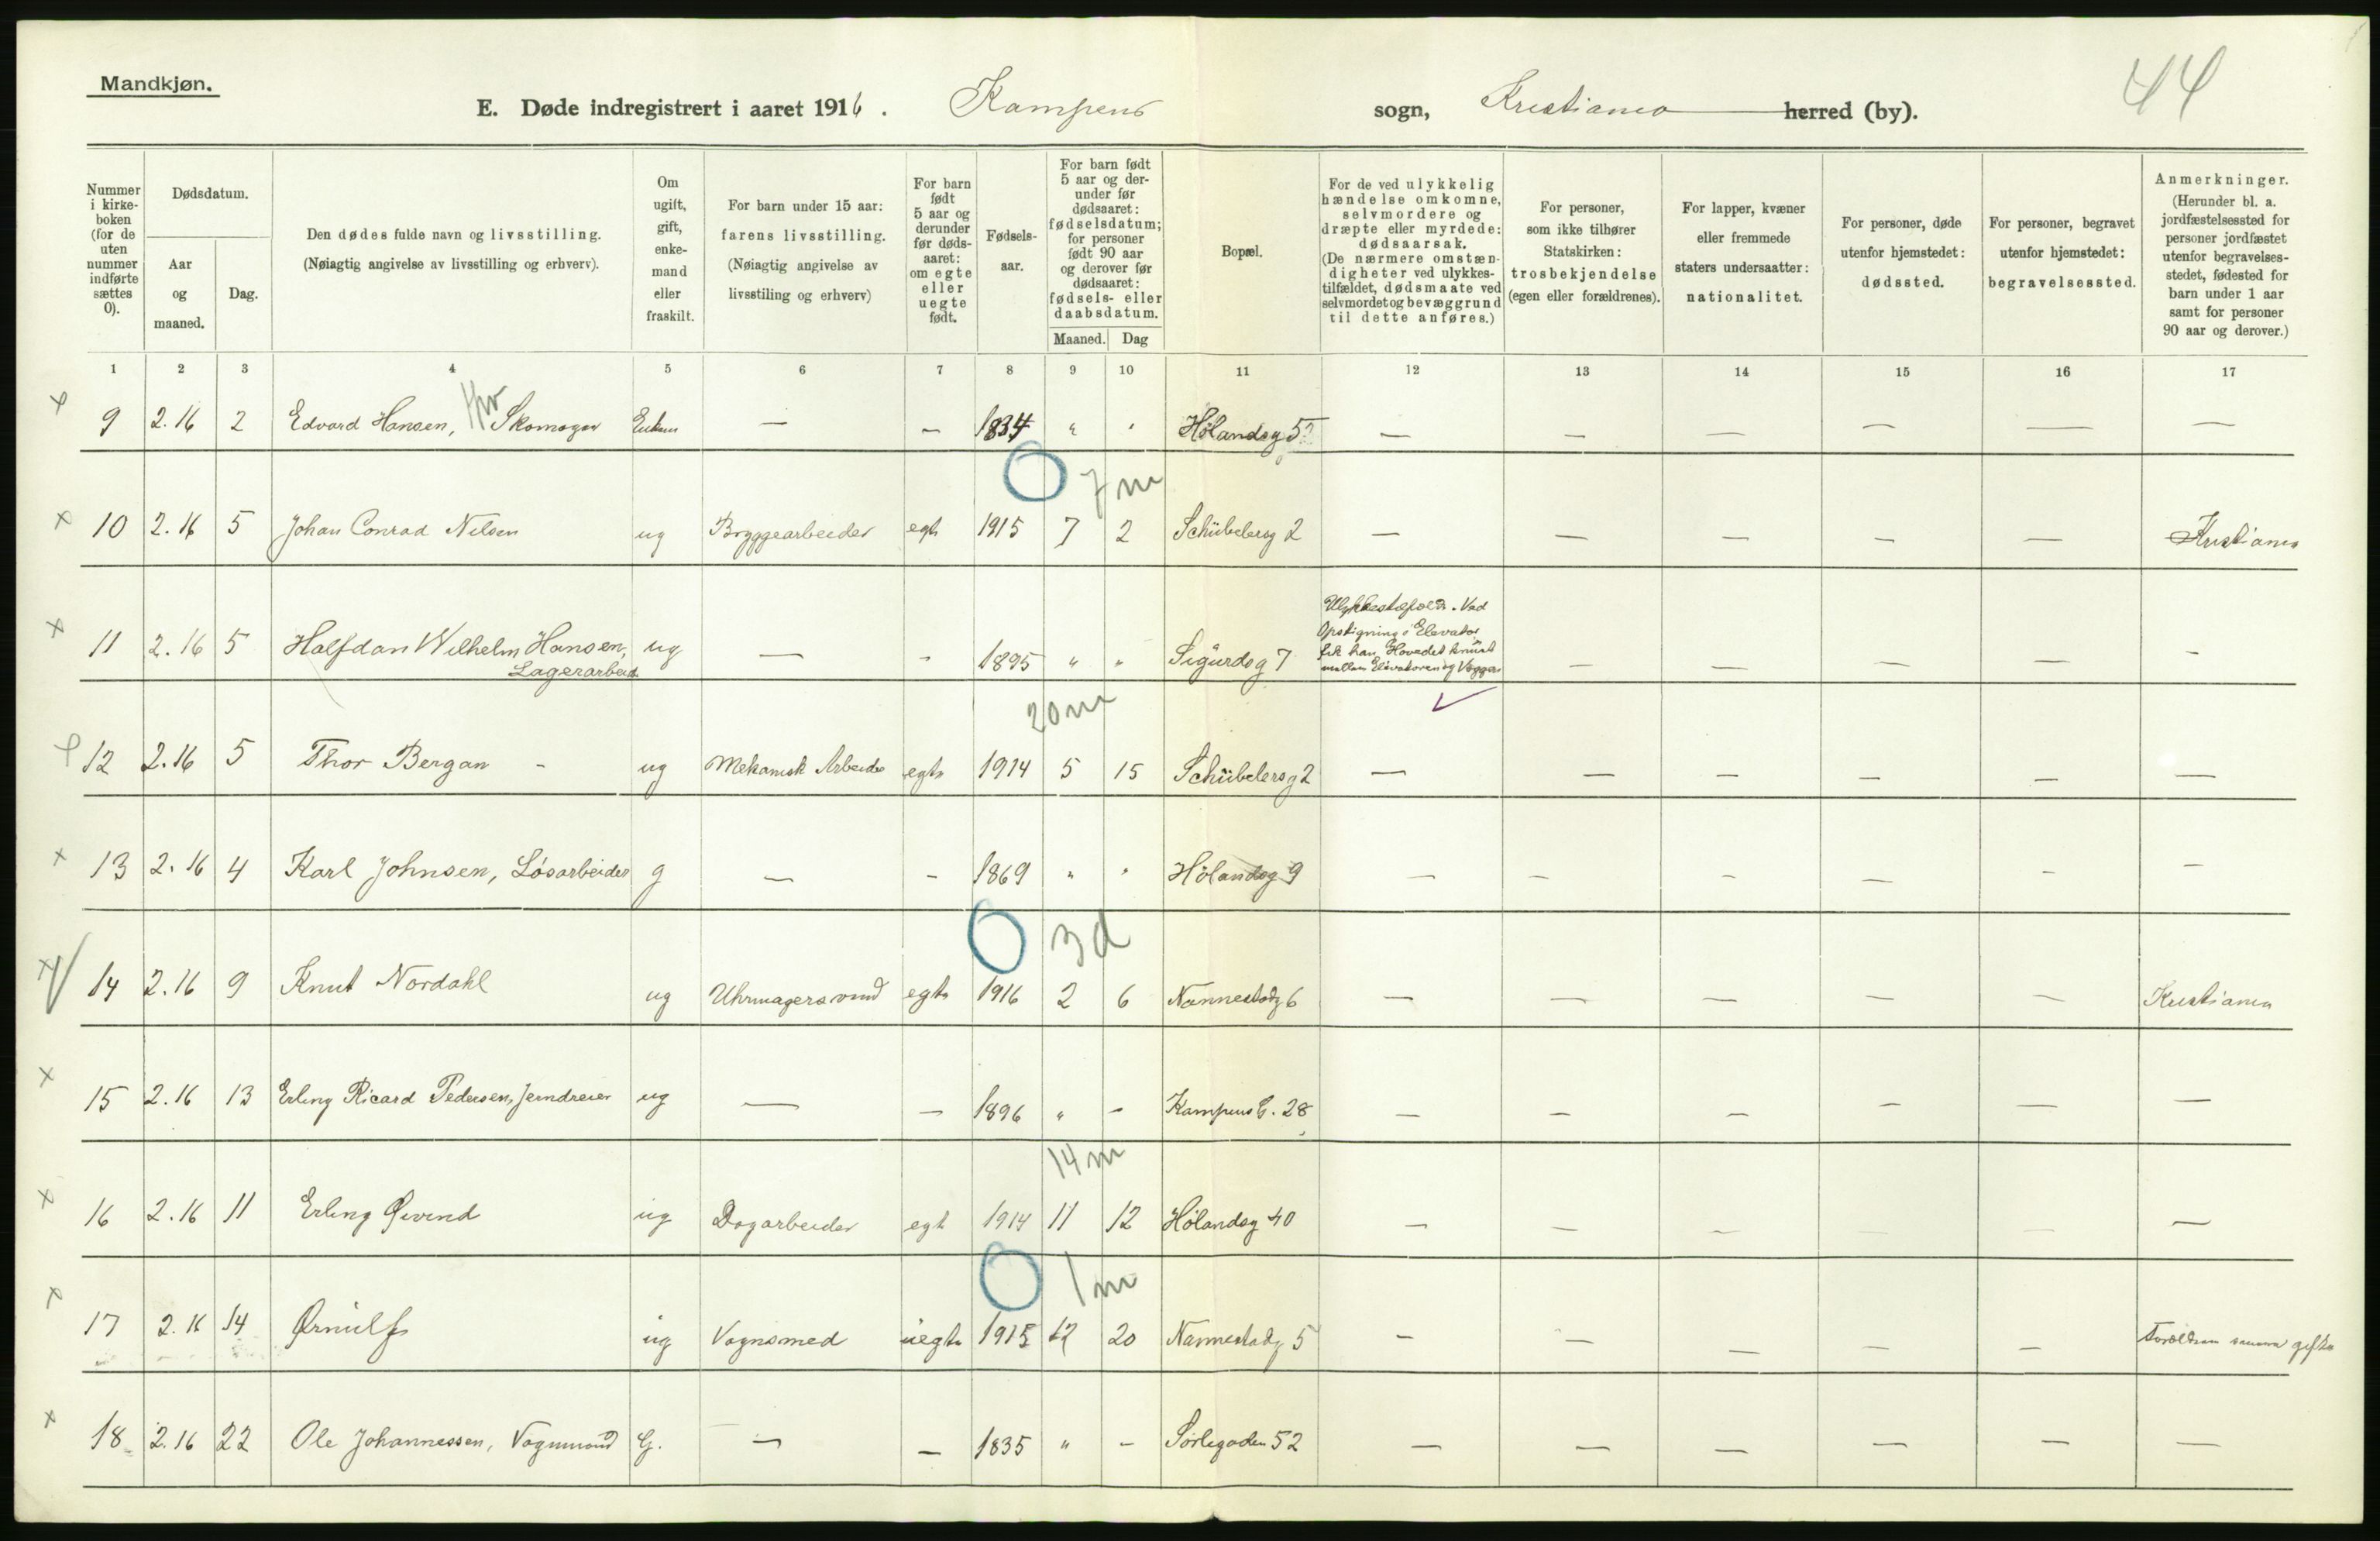 Mandkjøn.
44
E. Døde indregistrert i aaret 1916. Kampens sogn, Kristiania herred (by).
Nummer i kirkeboken (for de uten nummer indførte sættes 0).
Dødsdatum.
Aar og maaned.
Dag.
Den dødes fulde navn og livsstilling. (Nøiagtig angivelse av livsstilling og erhverv).
Om ugift, gift, enkemand eller fraskilt.
For barn under 15 aar: farens livsstilling. (Nøiagtig angivelse av livsstiling og erhverv)
For barn født 5 aar og derunder før dødsaaret: om egte eller uegte født.
Fødselsaar.
For barn født 5 aar og derunder før dødsaaret: fødselsdatum; for personer født 90 aar og derover før dødsaaret: fødsels- eller daabsdatum.
Maaned. Dag
Bopæl.
For de ved ulykkelig hændelse omkomne, selvmordere og dræpte eller myrdede: dødsaarsak. (De nærmere omstændigheter ved ulykkestilfældet, dødsmaate ved selvmordet og bevæggrund til dette anføres.)
For personer, som ikke tilhører Statskirken: trosbekjendelse (egen eller forældrenes).
For lapper, kvæner eller fremmede staters undersaatter: nationalitet.
For personer, døde utenfor hjemstedet: dødssted.
For personer, begravet utenfor hjemstedet: begravelsessted.
Anmerkninger. (Herunder bl. a. jordfæstelsessted for personer jordfæstet utenfor begravelsesstedet, fødested for barn under 1 aar samt for personer 90 aar og derover.)
1 2 3 4 5 6 7 8 9 10 11 12 13 14 15 16 17
9 2.16 2 Edvard Hansen, Skomager — — 1834 " " Hølandsg — — — — — —
0 7 m
10 2.16 5 Johan Conrad Nilsen ug Bryggearbeider egte 1915 7 2 Schübelersg 2 — — — — — Kristiania
11 2.16 5 Halfdan Wilhelm Hansen, Lagerarbeid ug — - 1895 " " Sigurdsg 7 Ulykkestilfælde. Ved Opstigning i Elevator fik han Hovedet knust mellem Elevatoren og Væggen — — — — -
20 m
12 2.16 5 Thor Bergan - ug Mekanisk Arbeider egte 1914 5 15 Schübelersg 2 — — — — — —
13 2.16 4 Karl Johnsen, Løsarbeider g — - 1869 " " Hølandsg 9 — — — — - —
0 3 d
14 2.16 9 Knut Nordahl ug Uhrmagersvend egte 1916 2 6 Nannestadg 6 — — — — — Kristiania
15 2.16 13 Erling Ricard Pedersen, Jerndreier ug — — 1896 " - Kampens G. 28 — — — — — —
14 m
16 2.16 11 Erling Øivind ug Dagarbeider egt 1914 11 12 Hølandsg 40 — — — — — —
0 1 m
17 2.16 14 Ørnulf ug Vognsmed uegte 1915 12 20 Nannestadg 5 — — — — — Forældrene gifte
18 2.16 22 Ole Johannessen, Vognmand G. — — 1835 " - Sørligaden 52 — — — — — —